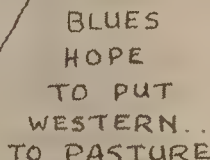 BLUES
HOPE
TO PUT
WESTERN..
TO PASTURE